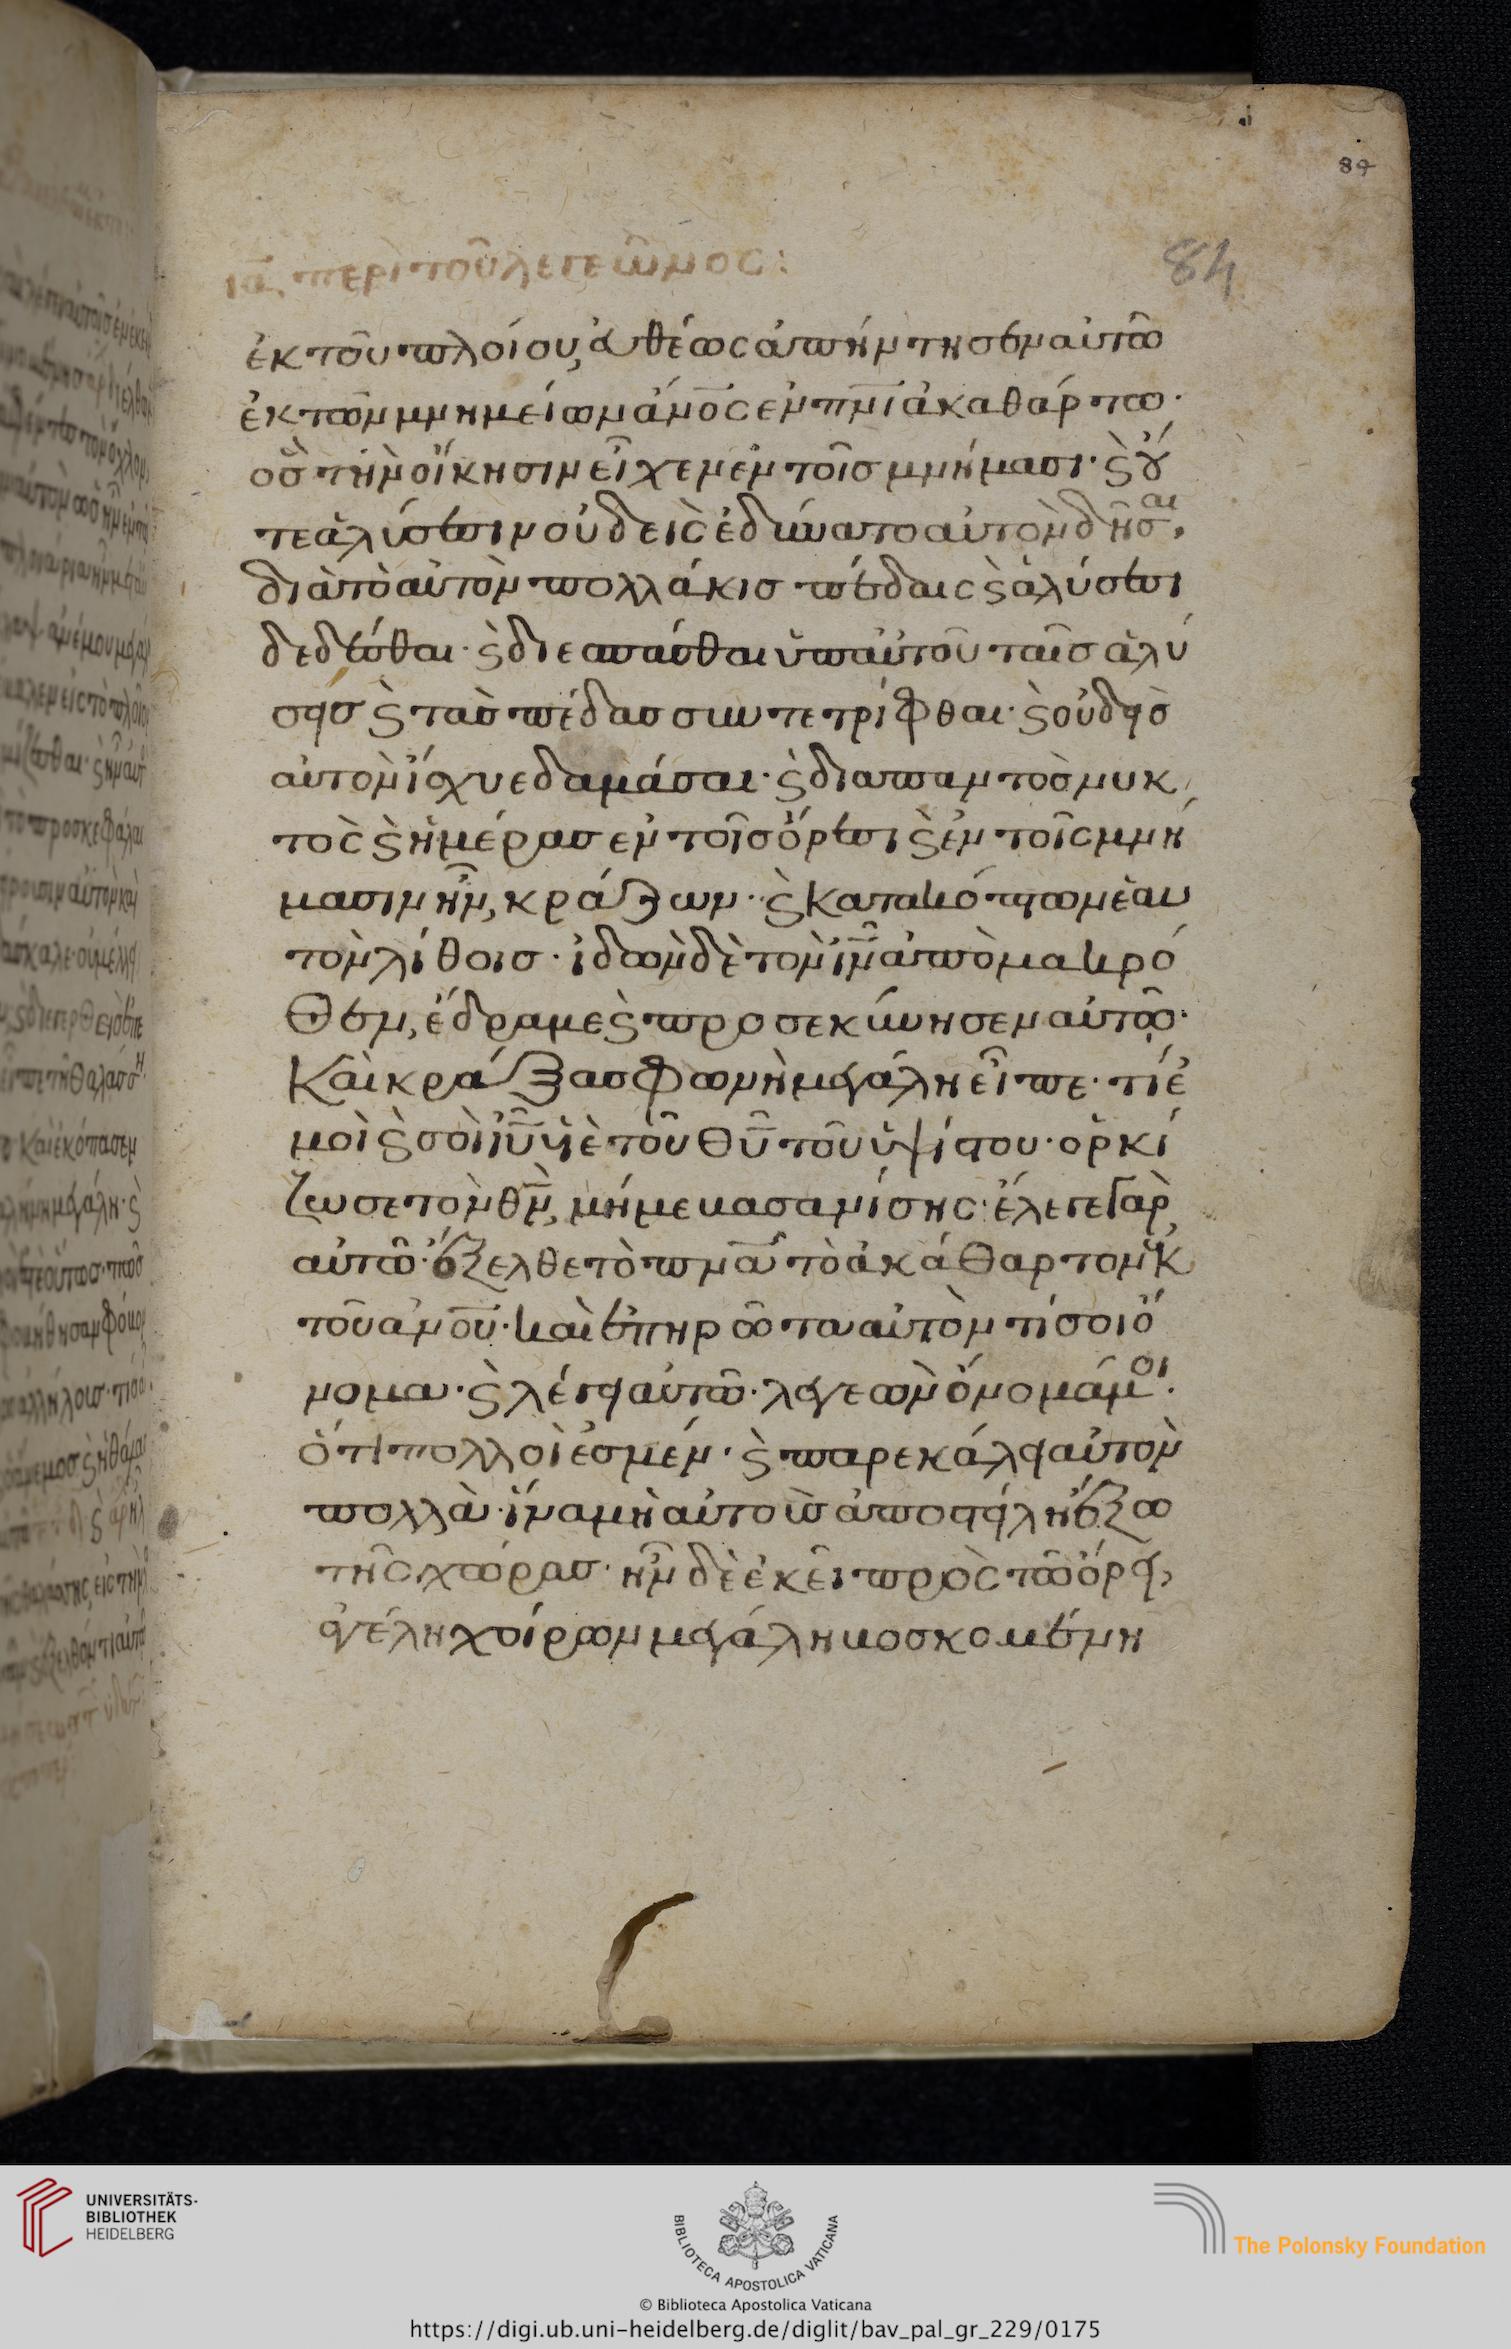 84
ια περὶ τοῦ λεγεῶνος:
84
ἐκ τοῦ πλοίου, εὐθέως ἀπήντησεν αὐτῶ
ἐκ τῶν μνημείων ἄνος ἐν πνι ἀκαθάρτω·
ὃσ τὴν οἴκησιν εἶχεν ἐν τοῖσ μνήμασι· ϗ οὔ
τε ἁλύσεσιν οὐδεὶς ἐδύνατο αὐτὸν δῆσαι,
διὰ τὸ αὐτὸν πολλάκισ πέδαις ϗ ἁλύσεσι
δεδέσθαι· ϗ διεσπάσθαι ὑπ αὐτοῦ ταῖσ ἁλύ
σεισ ϗ τὰσ πέδασ συντετρίφθαι· ϗ οὐδεὶσ
αὐτὸν ἴσχυε δαμάσαι· ϗ διαπαντὸσ νυκ
τὸς ϗ ἡμέρασ ἐν τοῖσ ὄρεσι ϗ ἐν τοῖς μνή
μασιν ἦν, κράζων· ϗ κατακόπτων ἑαυ
τὸν λίθοισ· ἰδὼν δὲ τὸν ιν ἀπὸ μακρό
θεν, ἔδραμε ϗ προσεκύνησεν αὐτῶ·
Καὶ κράξασ φωνὴ μεγάλη εἶπε· τί ἐ
μοὶ ϗ σοὶ ιυ υἱὲ τοῦ θυ τοῦ ὑψίστου· ὁρκί
ζω σε τὸν θν, μή με βασανίσης· ἔλεγε γὰρ
αὐτῶ· ἔξελθε τὸ πνα τὸ ἀκάθαρτον ἐκ
τοῦ ανου· καὶ ἐπηρώτα αὐτὸν τί σοι ὄ
νομα· ϗ λέγει αὐτῶ· λεγεὼν ὄνομά μοι·
ὅτι πολλοὶ ἐσμέν· ϗ παρεκάλει αὐτὸν
πολλὰ· ἵνα μὴ αὐτοὺσ ἀποστείλη ἔξω
τῆς χώρασ· ἦν δὲ ἐκεῖ πρὸς τῶ ὄρει,
ἀγέλη χοίρων μεγάλη βοσκομένη
UNIVERSITÄTS-
BIBLIOTHEK
HEIDELBERG
BIBLIOTECA APOSTOLICA VATICANA
The Polonsky Foundation
© Biblioteca Apostolica Vaticana
https://digi.ub.uni-heidelberg.de/diglit/bav_pal_gr_229/0175